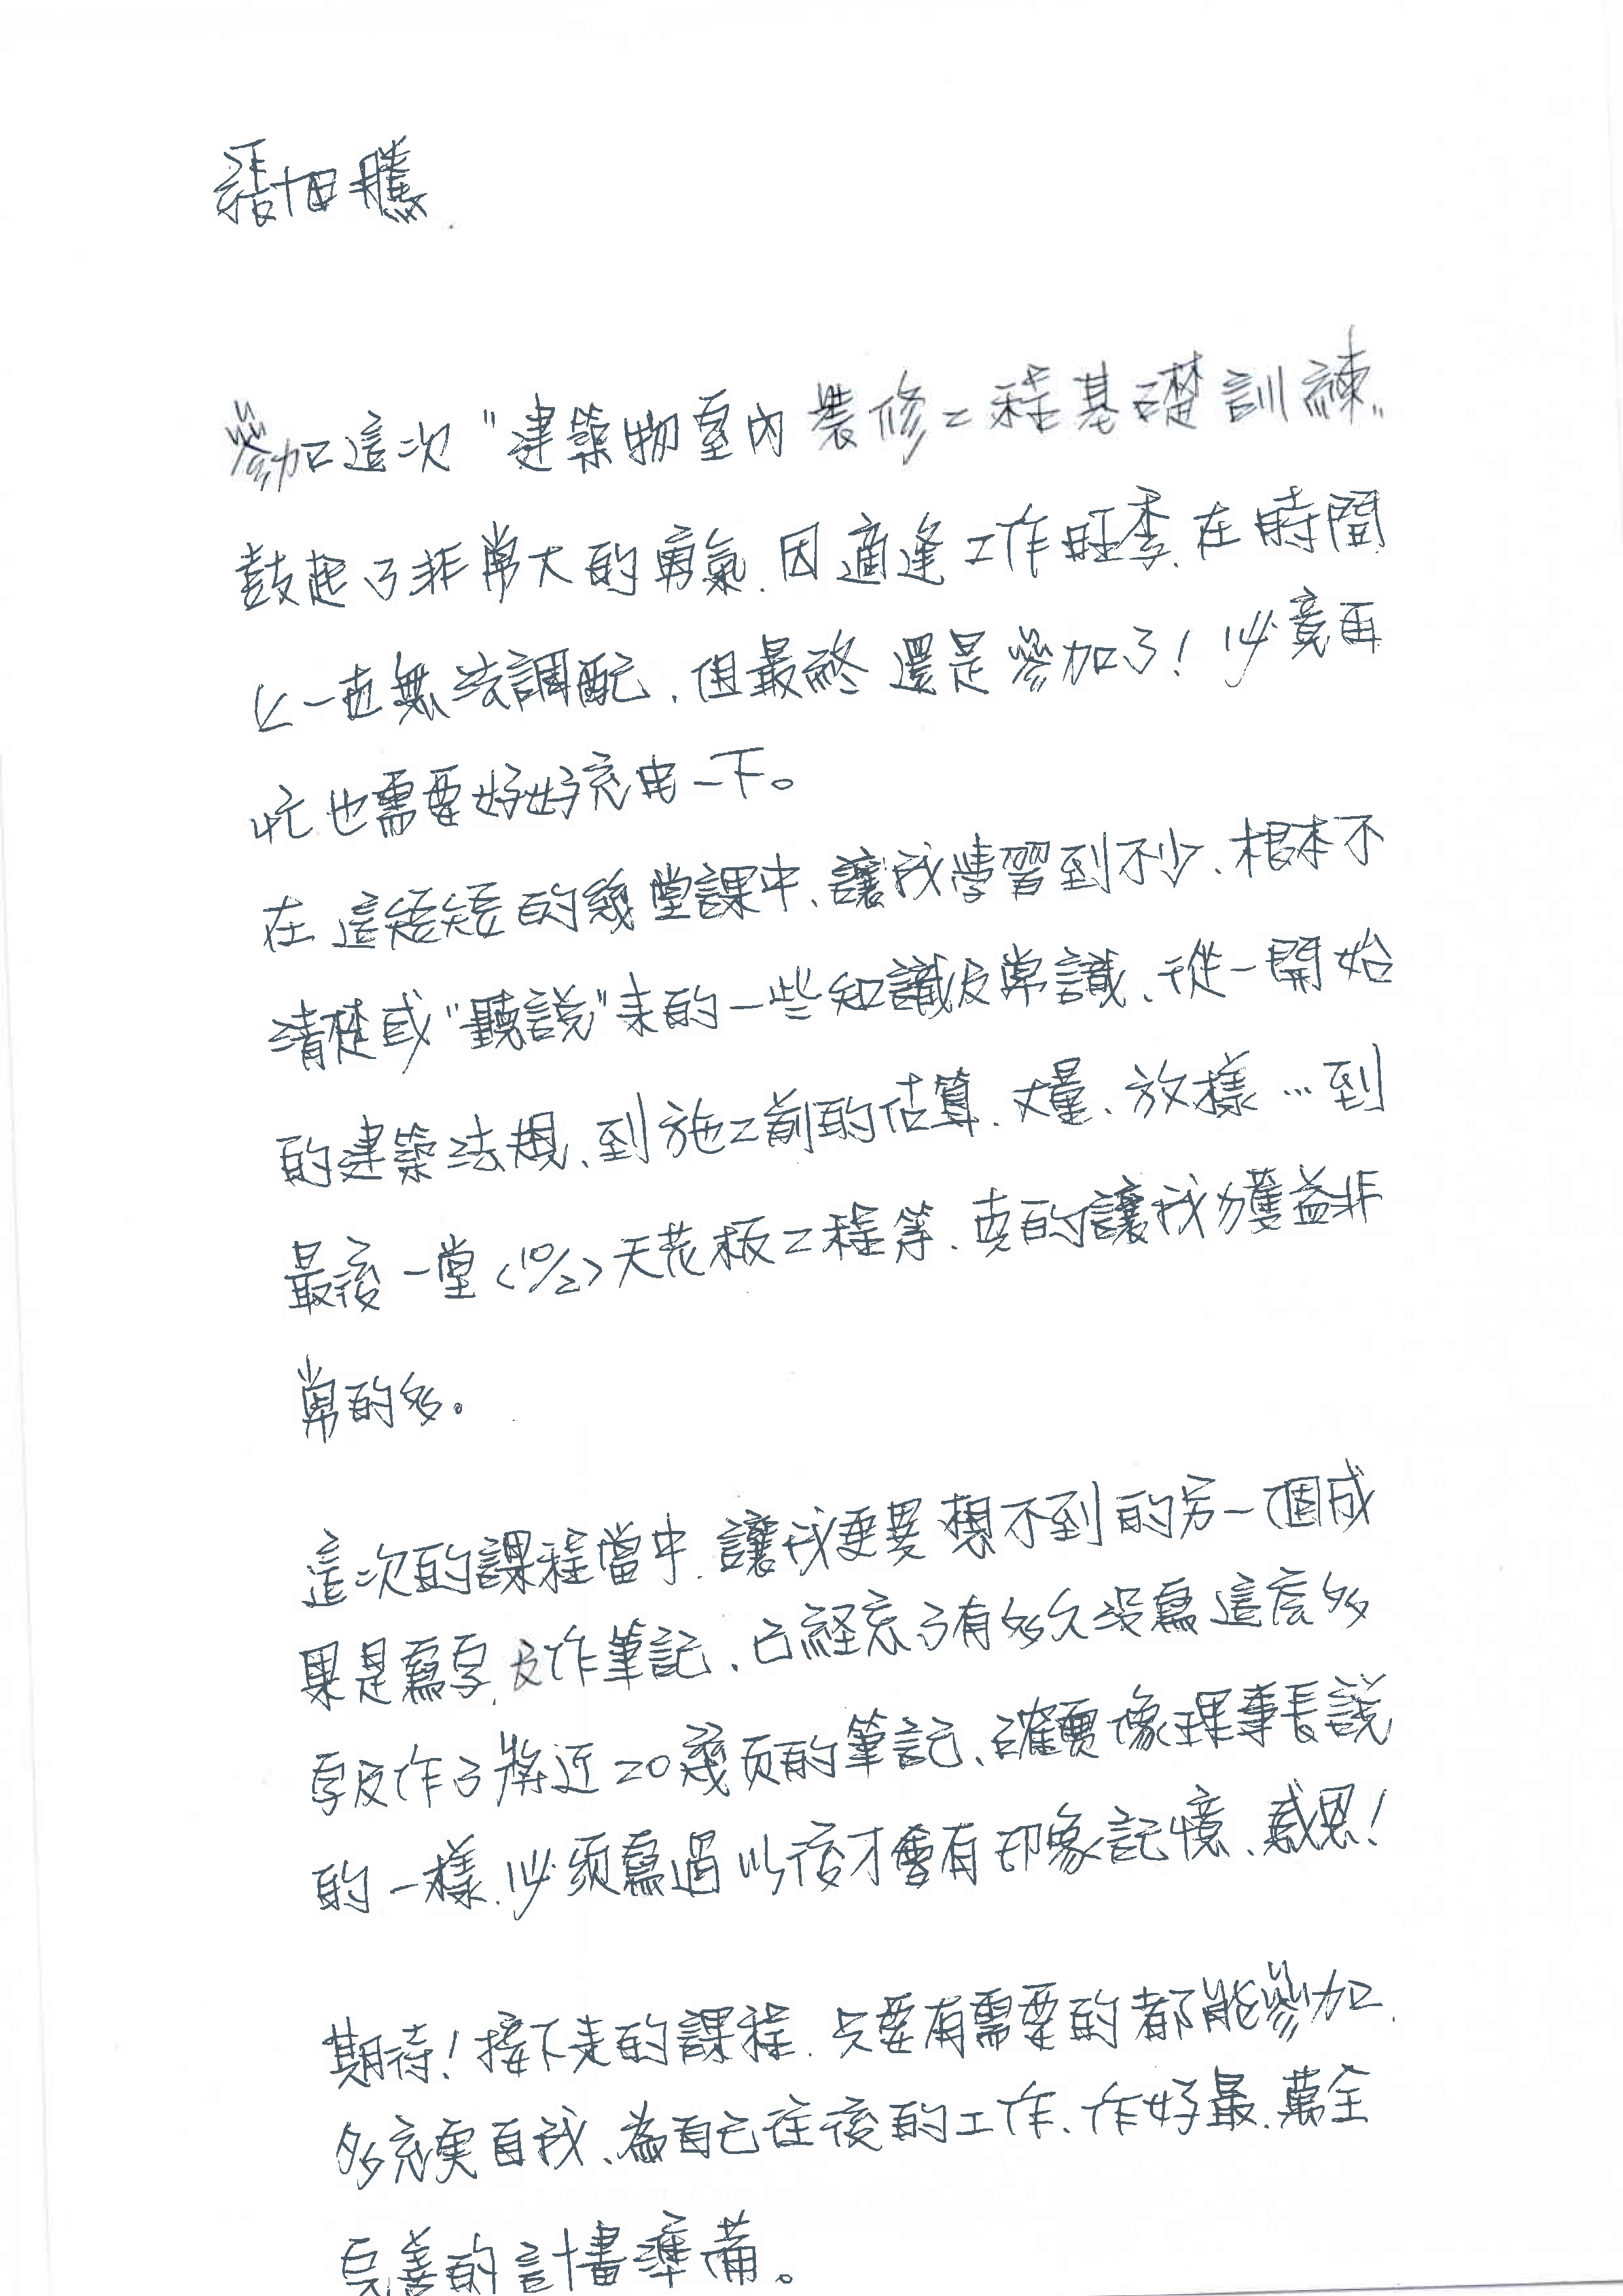 張旭騰
參加這次"建築物室內裝修工程基礎訓練"
鼓起了非常大的勇氣.因適逢工作旺季.在時間
上一直無法調配、但最終還是參加了！必竟再
忙也需要好好充电一下。
在這短短的幾堂課中、讓我學習到不少、根本不
清楚或"聽說"来的一些知識及常識、從一開始
的建築法規、到施工前的估算、丈量、放樣…到
最後一堂<10/2>天花板工程等、真的讓我獲益非
常的多。
這次的課程當中.讓我更要想不到的另一個成
果是寫字.及作筆記、已経忘了有多久沒寫這麼多
字及作了將近20幾頁的筆記、確實像理事長說
的一樣.必須寫過以後才會有印象記憶、感恩！
期待！接下来的課程.只要有需要的都能參加.
多充實自我、為自己往後的工作、作好最.萬全
完善的計畫準備。